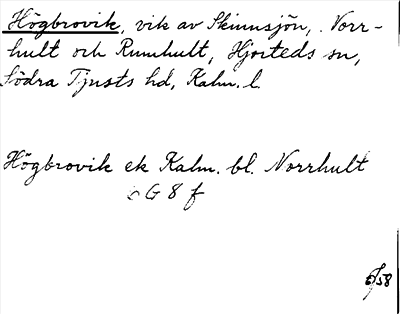 Högbrovik, vik av Skinnsjön, Norr-
hult och Rumhult, Hjorteds sn,
Södra Tjusts hd, Kalm. l.
Högbrovik ek Kalm. bl. Norrhult
6 G 8 f
58